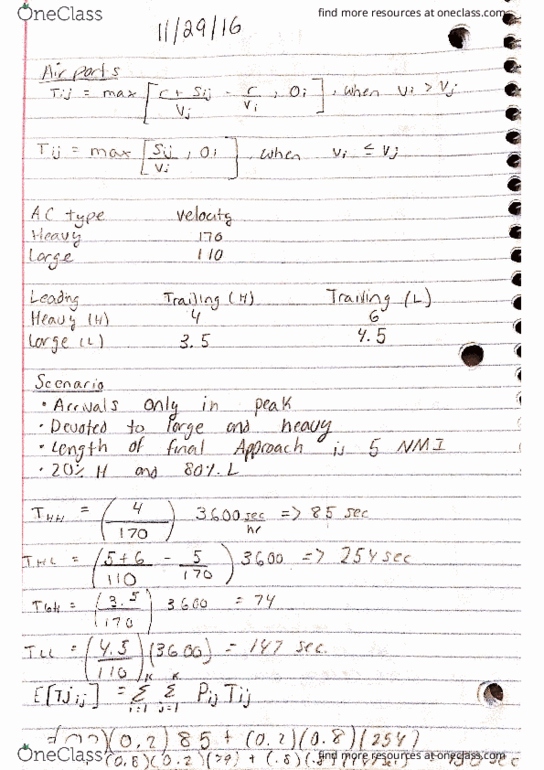 OneClass
find more resources at oneclass.com
11/29/16
Airports
Tij = max [ (r + Sij)/Vj - r/Vi , Oi ] , when Vi > Vj
Tij = max [ Sij/Vj , Oi ] when Vi ≤ Vj
AC type Velocity
Heavy 170
Large 110
Leading Trailing (H) Trailing (L)
Heavy (H) 4 6
Large (L) 3.5 4.5
Scenario
• Arrivals only in peak
• Devoted to large and heavy
• Length of final Approach is 5 NMI
• 20% H and 80% L
THH = (4/170) 3600 sec/hr => 85 sec
THL = ((5+6)/110 - 5/170) 3600 => 254 sec
TLH = (3.5/170) 3600 = 74
TLL = (4.5/110)(3600) = 147 sec.
E[Tij] = K Σ i=1 K Σ j=1 Pij Tij
(0.2) 85 + (0.2)(0.8)(254)
OneClass
find more resources at oneclass.com
(0.8)(0.2)